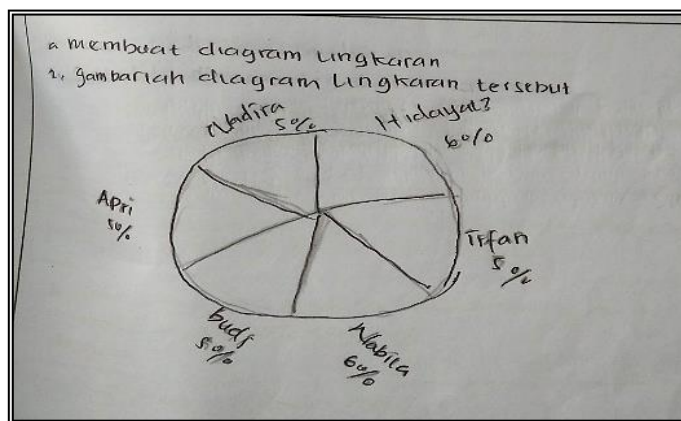 a membuat diagram lingkaran
2. gambarlah diagram lingkaran tersebut
Nadira
5%
Hidayat
6%
Irfan
5%
Nabila
6%
budi
5%
Apri
5%